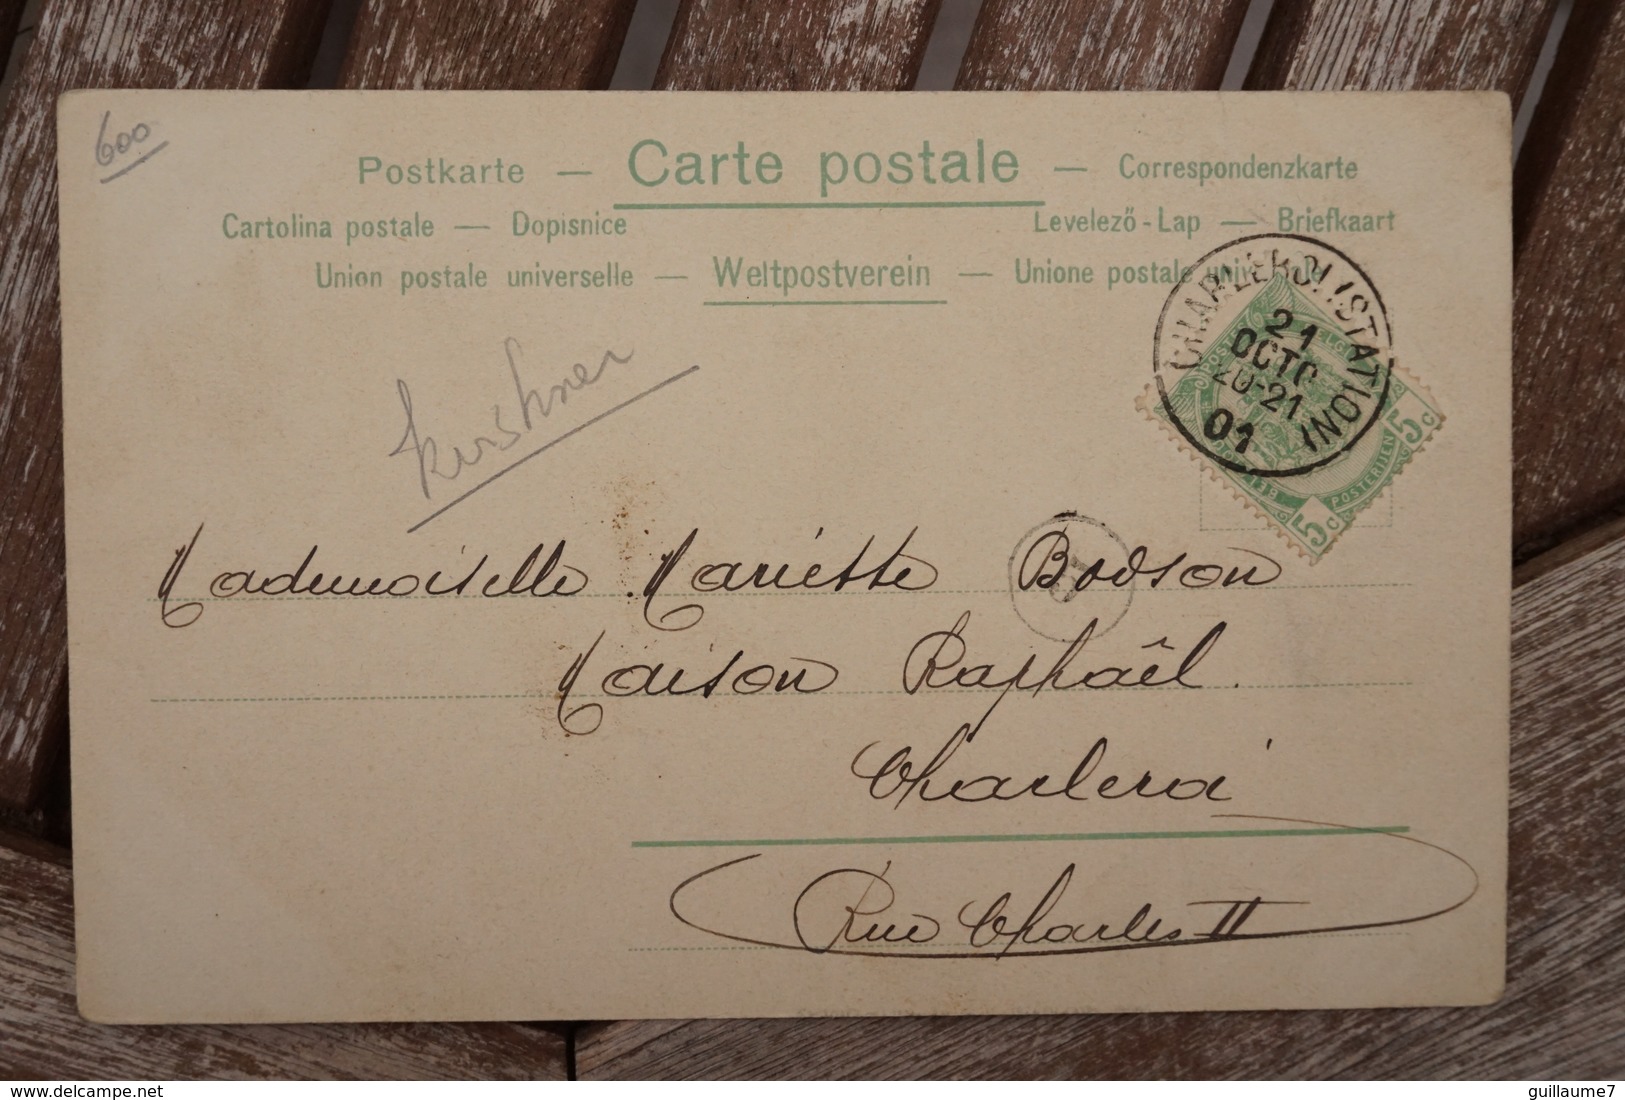 600
Postkarte — Carte postale — Correspondenzkarte
Cartolina postale — Dopisnice Levelező-Lap — Briefkaart
Union postale universelle — Weltpostverein — Unione postale
CHARLEROI (STATION)
21
OCTO
20-21
01
POSTES BELGIQUE
BELGIË POSTERIJEN
5c 5c
Kirshner
Mademoiselle Mariette Bodson
Maison Raphaël.
Charleroi
Rue Charles II
delcampe.net
guillaume7